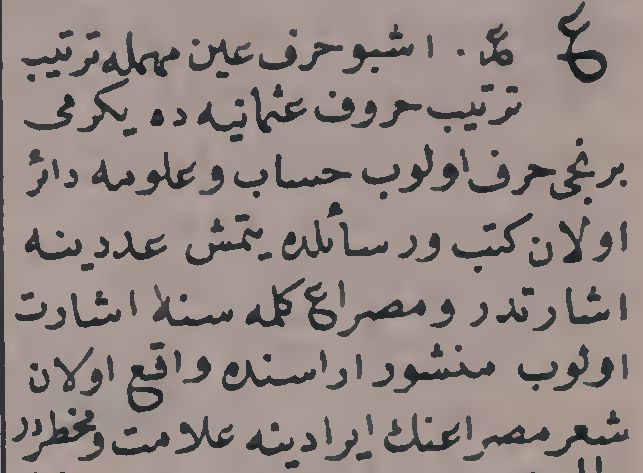 ع عـ. اشبو حرف عين مهمله ترتيب
ترتيب حروف عثمانيه ده يكرمى
برنجى حرف اولوب حساب وعلومه دائر
اولان كتب ورسائلده يتمش عددينه
اشارتدر ومصراع كلمه سنه اشارت
اولوب منشور اراسنده واقع اولان
شعر مصراعنك ايرادينه علامت ومخطردر